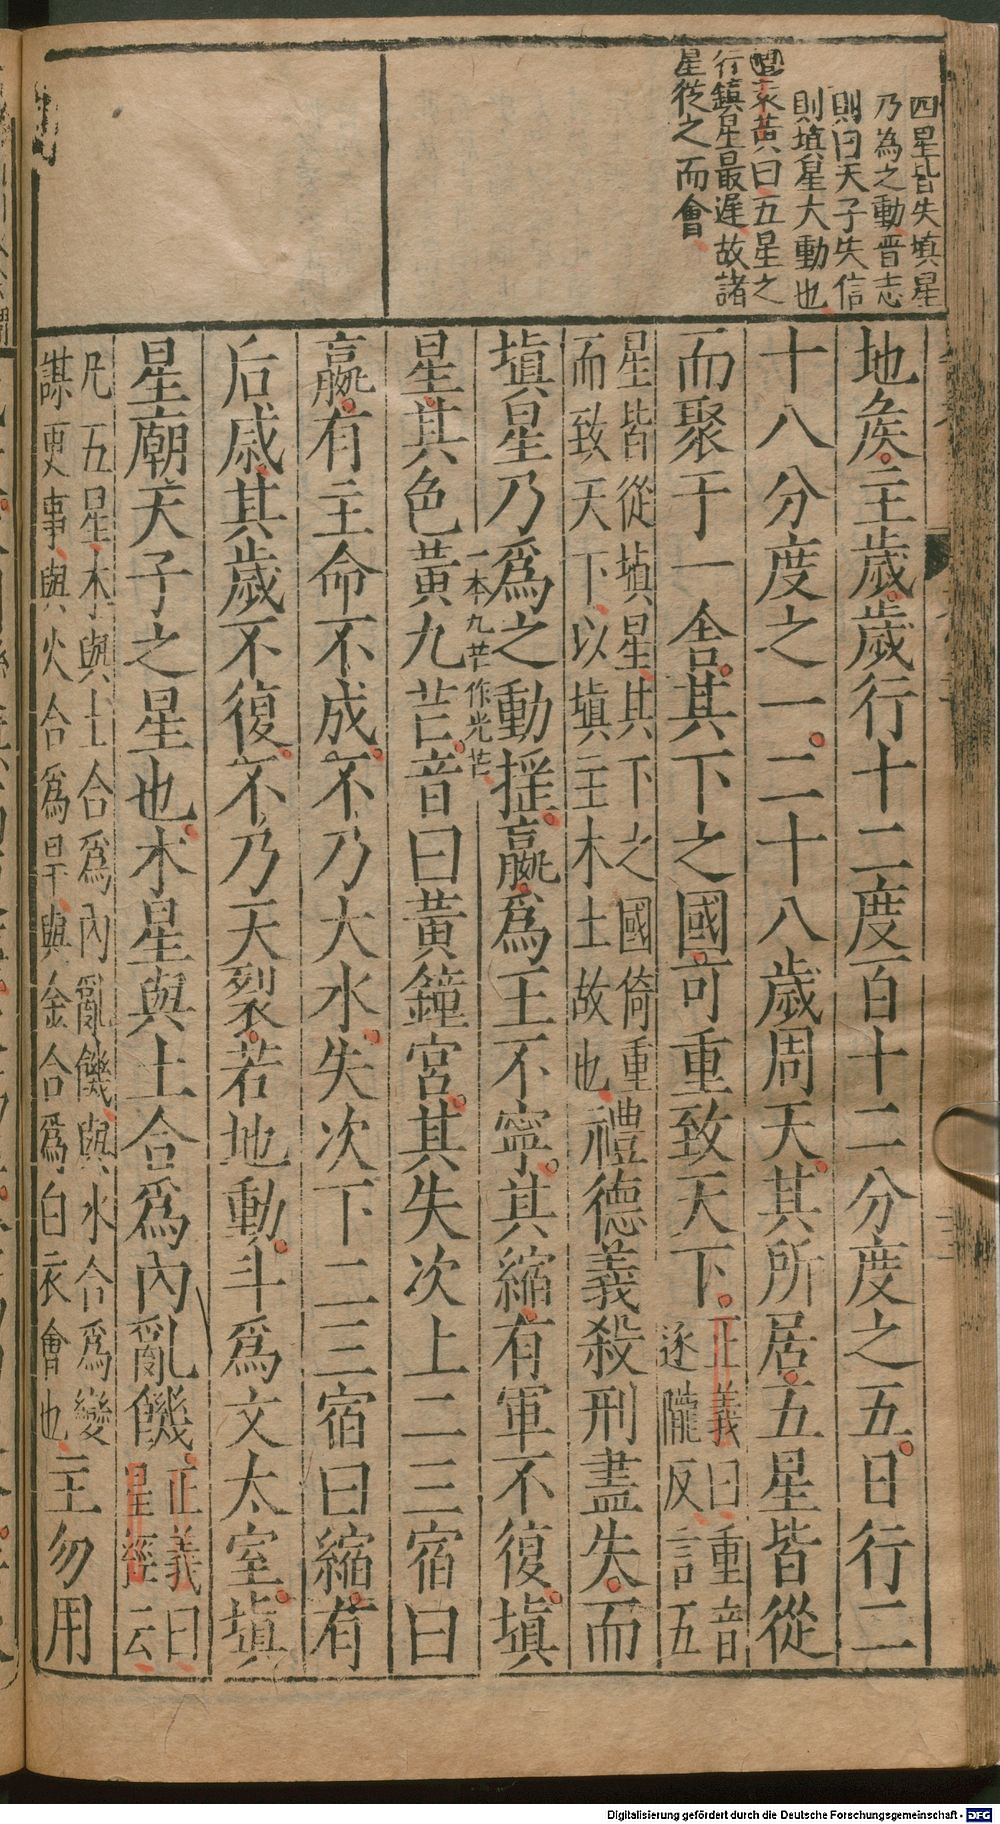 四星皆失填星
乃為之動晉志
則曰天子失信
則填星大動也
黃曰五星之
行鎮星最遲故諸
星從之而會
地矣主歲歲行十二度百十二分度之五日行二
十八分度之一二十八歲周天其所居五星皆從
而聚于一舍其下之國可重致天下
正義曰重音
逐隴反言五
星皆從填星其下之國倚重
而致天下以填主木土故也
禮德義殺刑盡失而
填星乃爲之動搖嬴爲王不寧其縮有軍不復填
一本九芒作光芒
星其色黃九芒音曰黃鐘宮其失次上二三宿曰
嬴有主命不成不乃大水失次下二三宿曰縮有
后戚其歲不復不乃天裂若地動斗爲文太室填
星廟天子之星也木星與土合爲內亂饑
正義曰
星經云
凡五星木與土合爲內亂饑與水合爲變
謀更事與火合爲旱與金合爲白衣會也
主勿用
Digitalisierung gefördert durch die Deutsche Forschungsgemeinschaft - DFG